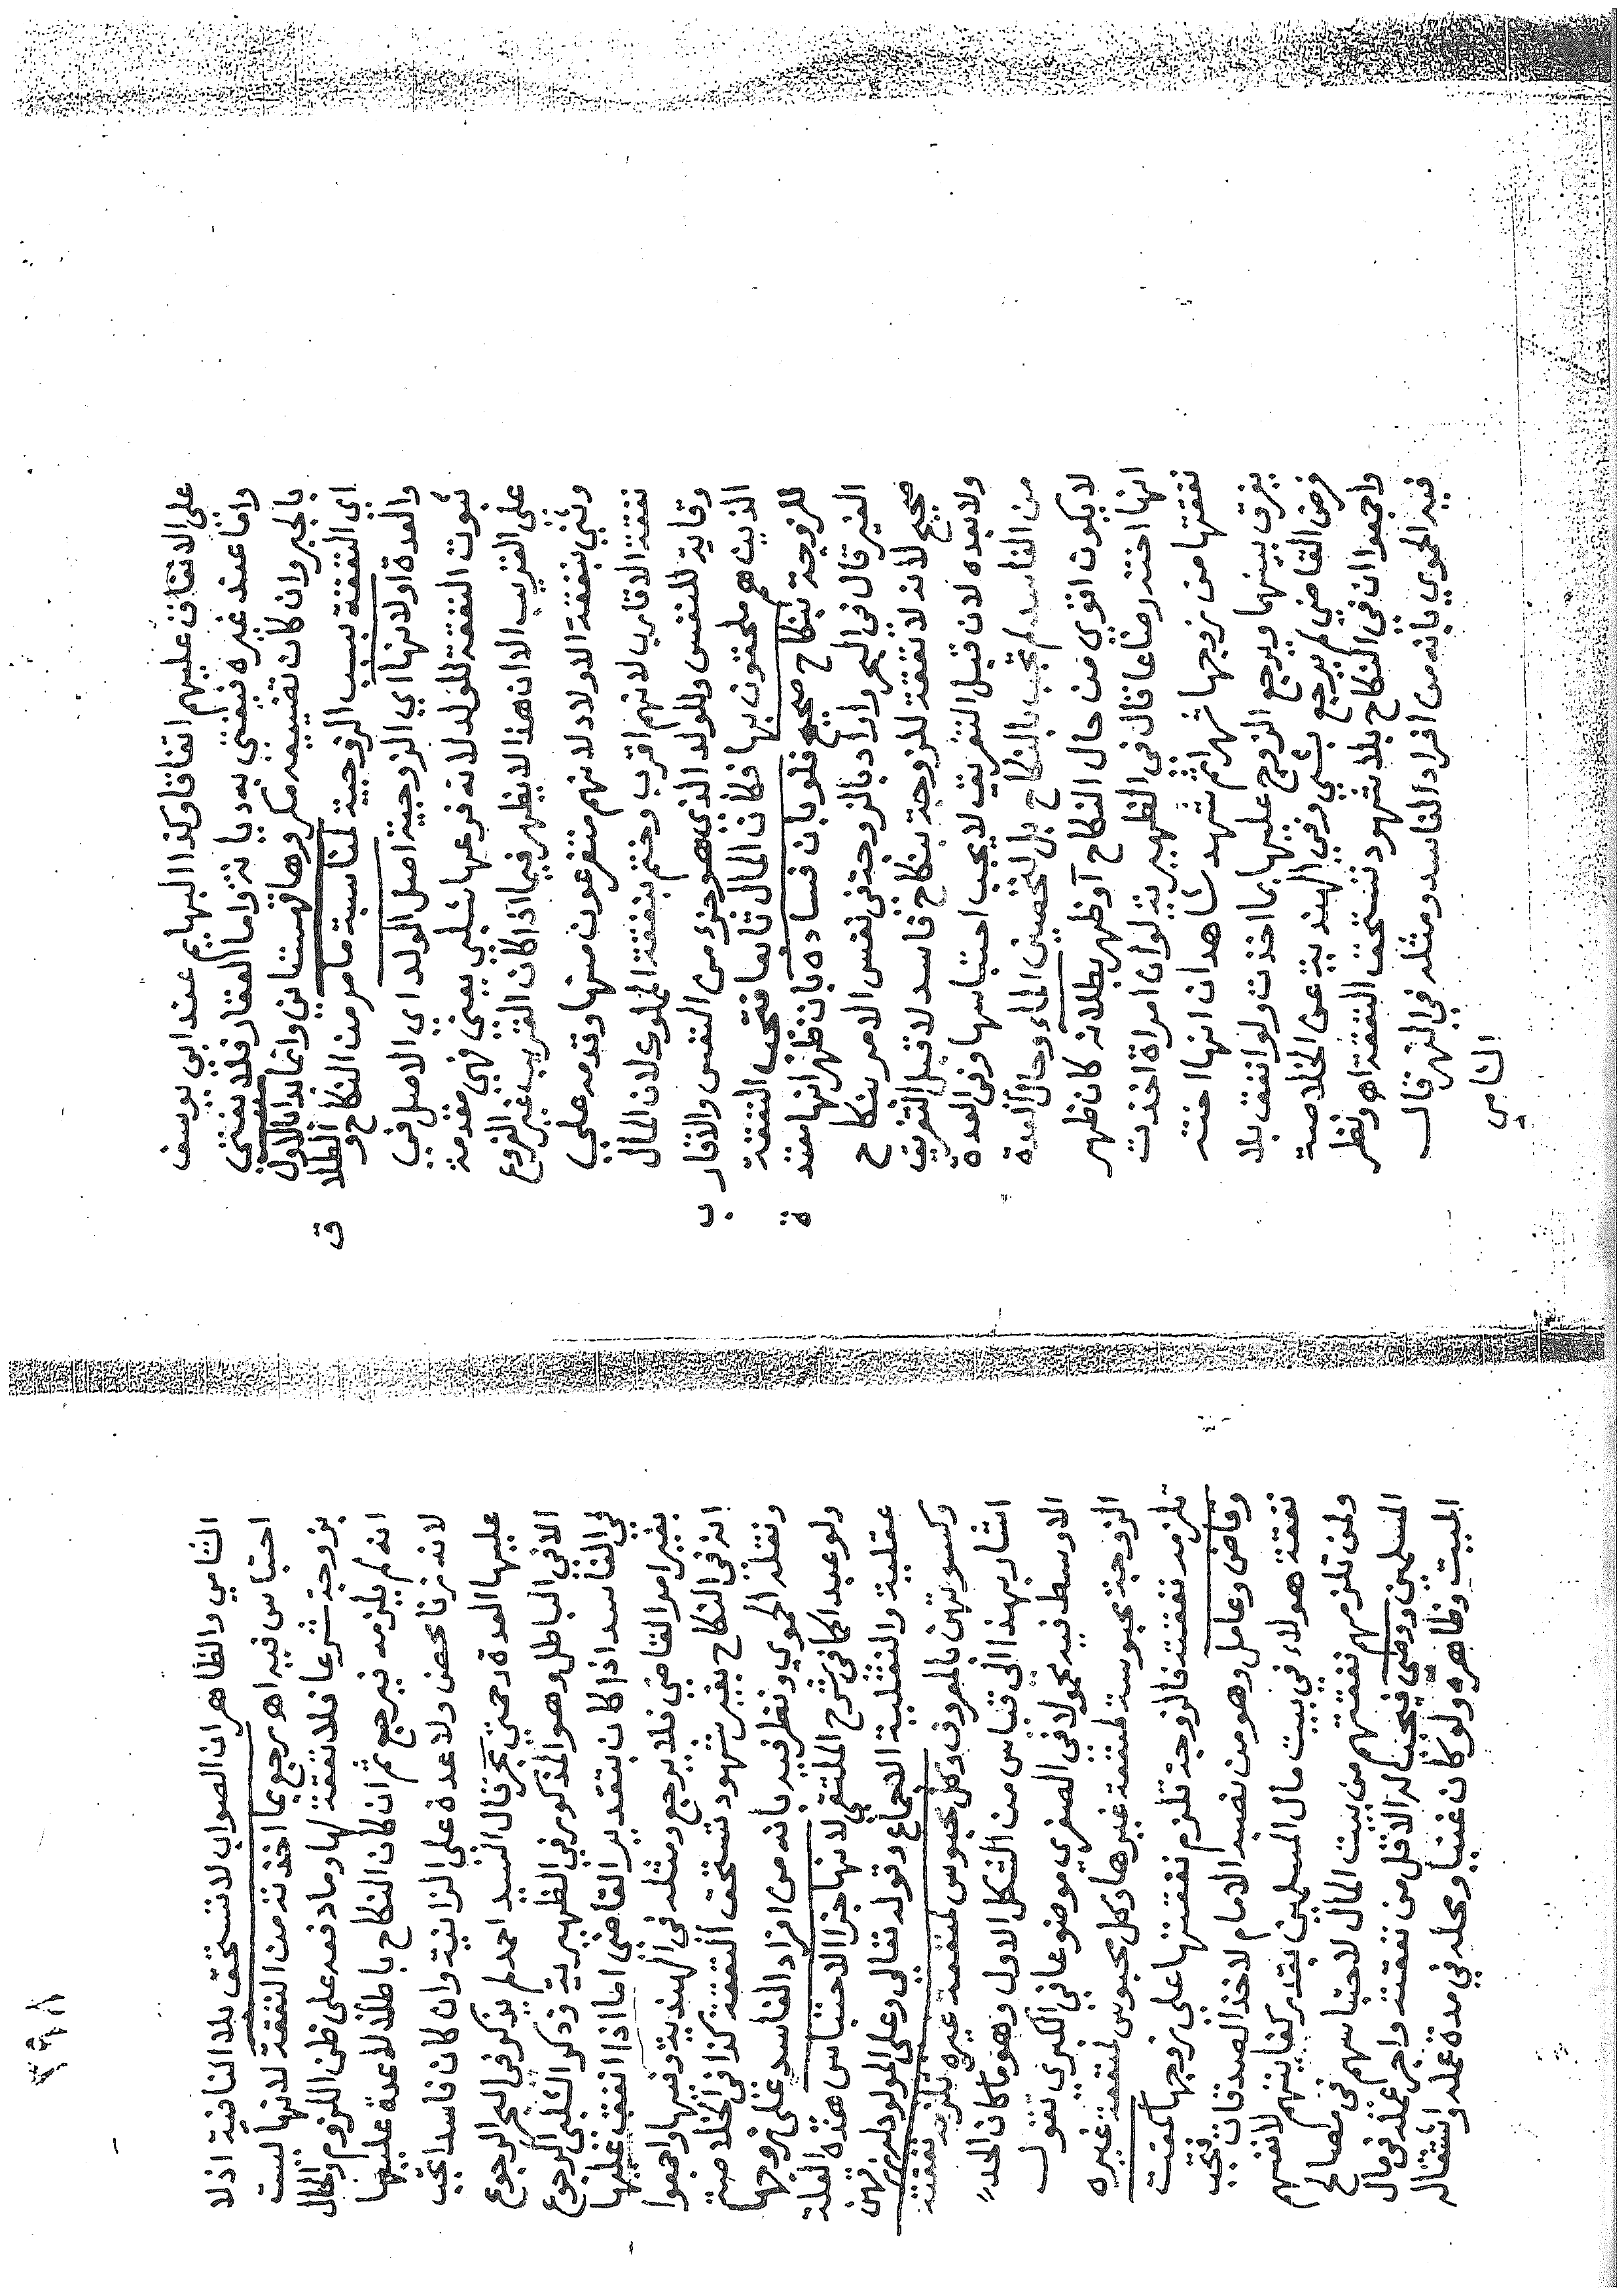 على الانفاق عليهم اتفاقا وكذا البهايم عند ابي يوسف
واما عند غيره فيفتي به ديانة واما العقار فلا يفتي
بالجبر وان كان تضييعه مكروها قهستاني وانما بدا بالاول
اي النفقة بسبب الزوجية لمناسبة ما مر من النكاح والطلاق
والعدة اولانها اي الزوجية اصل الولد اي الاصل في
ثبوت النفقة للولد لانه فرعها شلبي يعني فهي مقدمة
على القريب الا ان هذا لا يظهر فيما اذا كان القريب غير الفروع
وثني بنفقة الاولاد لانهم متفرعون منها وقدمه علي
نفقة الاقارب لانهم اقرب وختم بنفقة المملوك لان المال
وقاية للنفس وللولد الذي هو جزء من النفس والاقارب
الذين هم ملحقون بها فكان المال تابعا فتجب النفقة
للزوجة بنكاح صحيح فلو بان فساده بان ظهر انها معتدة
الغير قال في البحر واراد بالزوجة في نفس الامر بنكاح
صحيح لانه لا نفقة للزوجة بنكاح فاسد لا قبل التفريق
ولا بعده لان قبل التفريق لا يجب احتباسها وفي العدة
من الفاسد لم تجب بالنكاح بل لتحصين الماء وحال العدة
لا يكون اقوي من حال النكاح او ظهر بطلانه كان ظهر
انها اخته رضاعا قال في الظهيرية لو ان امراة اخذت
نفقتها من زوجها شهرا ثم شهد شاهدان انها اخته
يفرق بينهما ويرجع الزوج عليها بما اخذت ولو انفق بلا
فرض القاضي لم يرجع بشي وفي الهندية عن الخلاصة
واجمعوا ان في النكاح بلا شهود تستحق النفقة اه ونظر
فيه الحموي بانه من افراد الفاسد ومثله في النهر قال
الشامي
٢٩٨
الشامي والظاهر ان الصواب لا تستحق بلا النافية اذ لا
احتباس فيه اه رجع بما اخذته من النفقة لانها ليست
بزوجة شرعا فلا نفقة لها وما دفعه على ظن اللزوم والحال
انه لم يلزمه فيرجع ثم ان كان النكاح باطلا لا عدة عليها
لانه زنا محض ولا عدة علي الزانية وان كان فاسدا تجب
عليها العدة رحمتي بحر قال السيد احمد لم يذكر في البحر الرجوع
الا في الباطل وهو المذكور في الظهيرية وذكر الشلبي الرجوع
في الفاسد اذا كان بتقدير القاضي اما اذا انفق عليها
بغير امر القاضي فلا يرجع ومثله في الهندية وفيها واجمعوا
انه في النكاح بغير شهود تستحق النفقة كذا في الخلاصة
ونقله الحموي ونظر فيه بانه من افراد الفاسد على زوجها
ولو عبدا كما في شرح الملتقي لانها جزاء الاحتباس هذه العلة
عقلية والنقلية الاجماع وقوله تعالى وعلى المولود له رزقهن
وكسوتهن بالمعروف وكل محبوس لمنفعة غيره تلزمه نفقته
اشار بهذا الى قياس من الشكل الاول وهو ما كان الحد
الاوسط فيه محمولا في الصغري موضوعا في الكبري تقول
الزوجة محبوسة لمنفعة غيرها وكل محبوس لمنفعة غيره
تلزمه نفقته فالزوجة تلزم نفقتها على زوجها كمفت
وقاض وعامل وهو من نصبه الامام لاخذ الصدقات فتجب
نفقة هولاء في بيت مال المسلمين بقدر كفايتهم لانفسهم
ولمن تلزمهم نفقتهم من بيت المال لاحتباسهم في مصالح
المسلمين ووصي فيجب له الاقل من نفقته واجر عمله في مال
الميت وظاهره ولو كان غنيا ومحله في مدة عمله واشتغاله